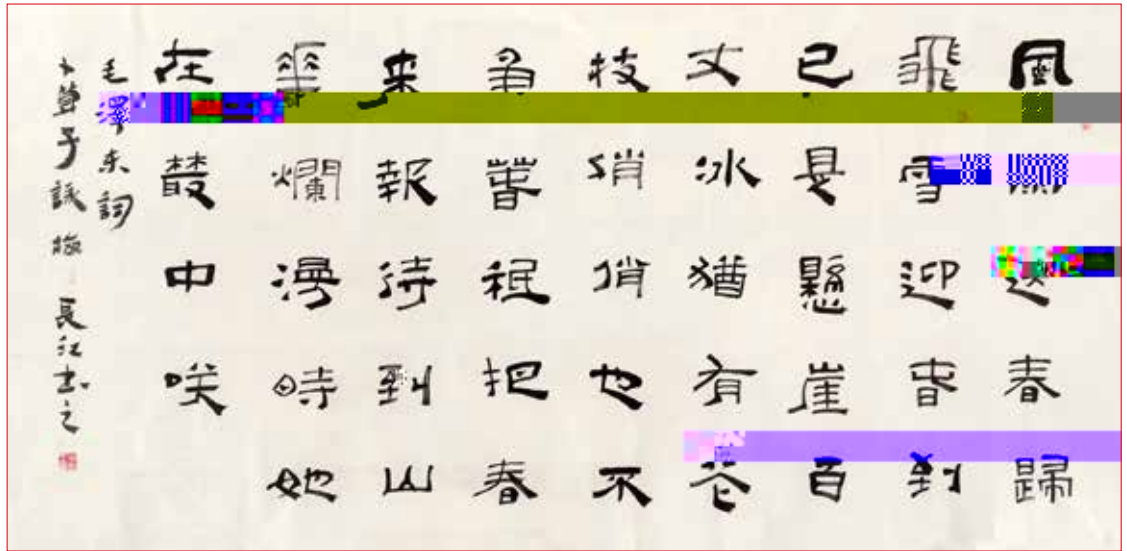 風送春歸
飛雪迎春到
已是懸崖百
丈冰猶有花
枝俏俏也不
爭春秖把春
来報待到山
華爛漫時她
在叢中咲
毛澤东詞
卜算子詠梅 長江书之